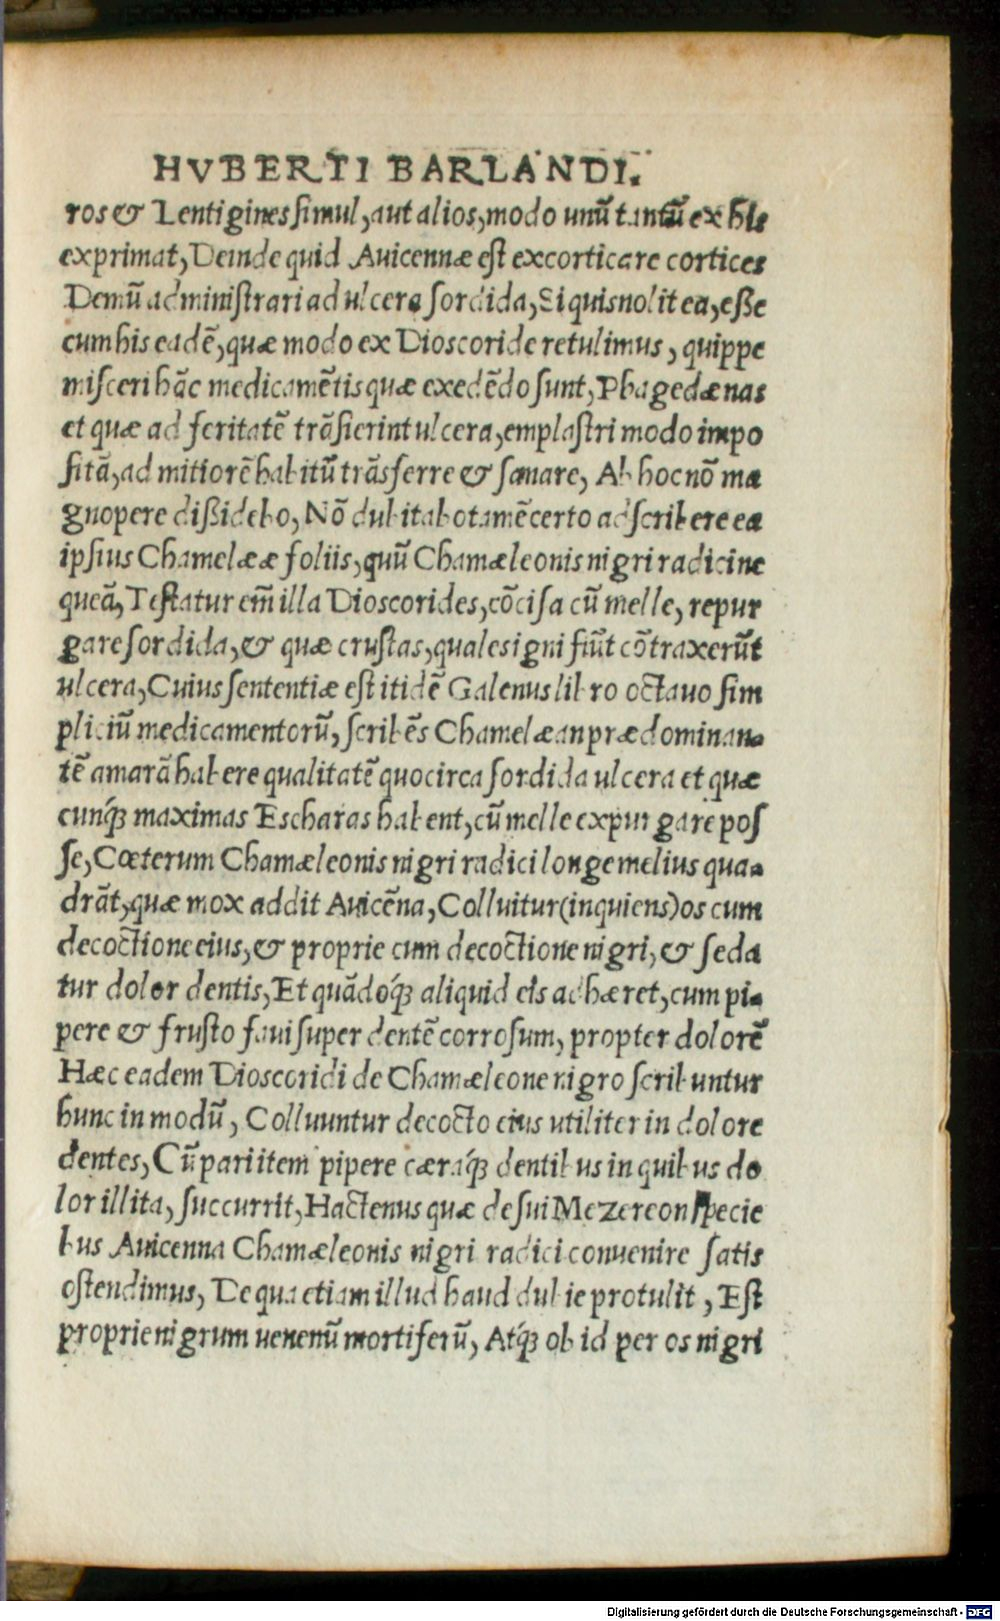 HVBERTI BARLANDI.
ros & Lentigines simul, aut alios, modo unũ tantũ ex his
exprimat, Deinde quid Auicennæ est excorticare cortices
Demũ administrari ad ulcera sordida, Si quis nolit ea, eße
cum his eadẽ, quæ modo ex Dioscoride retulimus, quippe
misceri hãc medicamẽtis quæ exedẽdo sunt, Phagedænas
et quæ ad feritatẽ trãsierint ulcera, emplastri modo impo
sitã, ad mitiorẽ habitũ trãsferre & sanare, Ab hoc nõ ma
gnopere dißidebo, Nõ dubitabo tamẽ certo adscribere ea
ipsius Chamelææ foliis, quũ Chamæleonis nigri radici ne
queã, Testatur em̃ illa Dioscorides, cõcisa cũ melle, repur
gare sordida, & quæ crustas, quales igni fiũt cõtraxerũt
ulcera, Cuius sententiæ est itidẽ Galenus libro octauo sim
pliciũ medicamentorũ, scribẽs Chamelæan prædominan-
tẽ amarã habere qualitatẽ quocirca sordida ulcera et quæ
cunq́ꝫ maximas Escharas habent, cũ melle expurgare pos
se, Cœterum Chamæleonis nigri radici longe melius qua-
drãt, quæ mox addit Auicẽna, Colluitur (inquiens) os cum
decoctione eius, & proprie cum decoctione nigri, & seda
tur dolor dentis, Et quãdoq́ꝫ aliquid eis adhæret, cum pi-
pere & frusto faui super dentẽ corrosum, propter dolorẽ
Hæc eadem Dioscoridi de Chamæleone nigro scribuntur
hunc in modũ, Colluuntur decocto eius utiliter in dolore
dentes, Cũ pari item pipere cæraq́ꝫ dentibus in quibus do
lor illita, succurrit, Hactenus quæ de sui Mezereon specie
bus Auicenna Chamæleonis nigri radici conuenire satis
ostendimus, De qua etiam illud haud dubie protulit, Est
proprie nigrum uenenũ mortiferũ, Atq́ꝫ ob id per os nigri
Digitalisierung gefördert durch die Deutsche Forschungsgemeinschaft - DFG